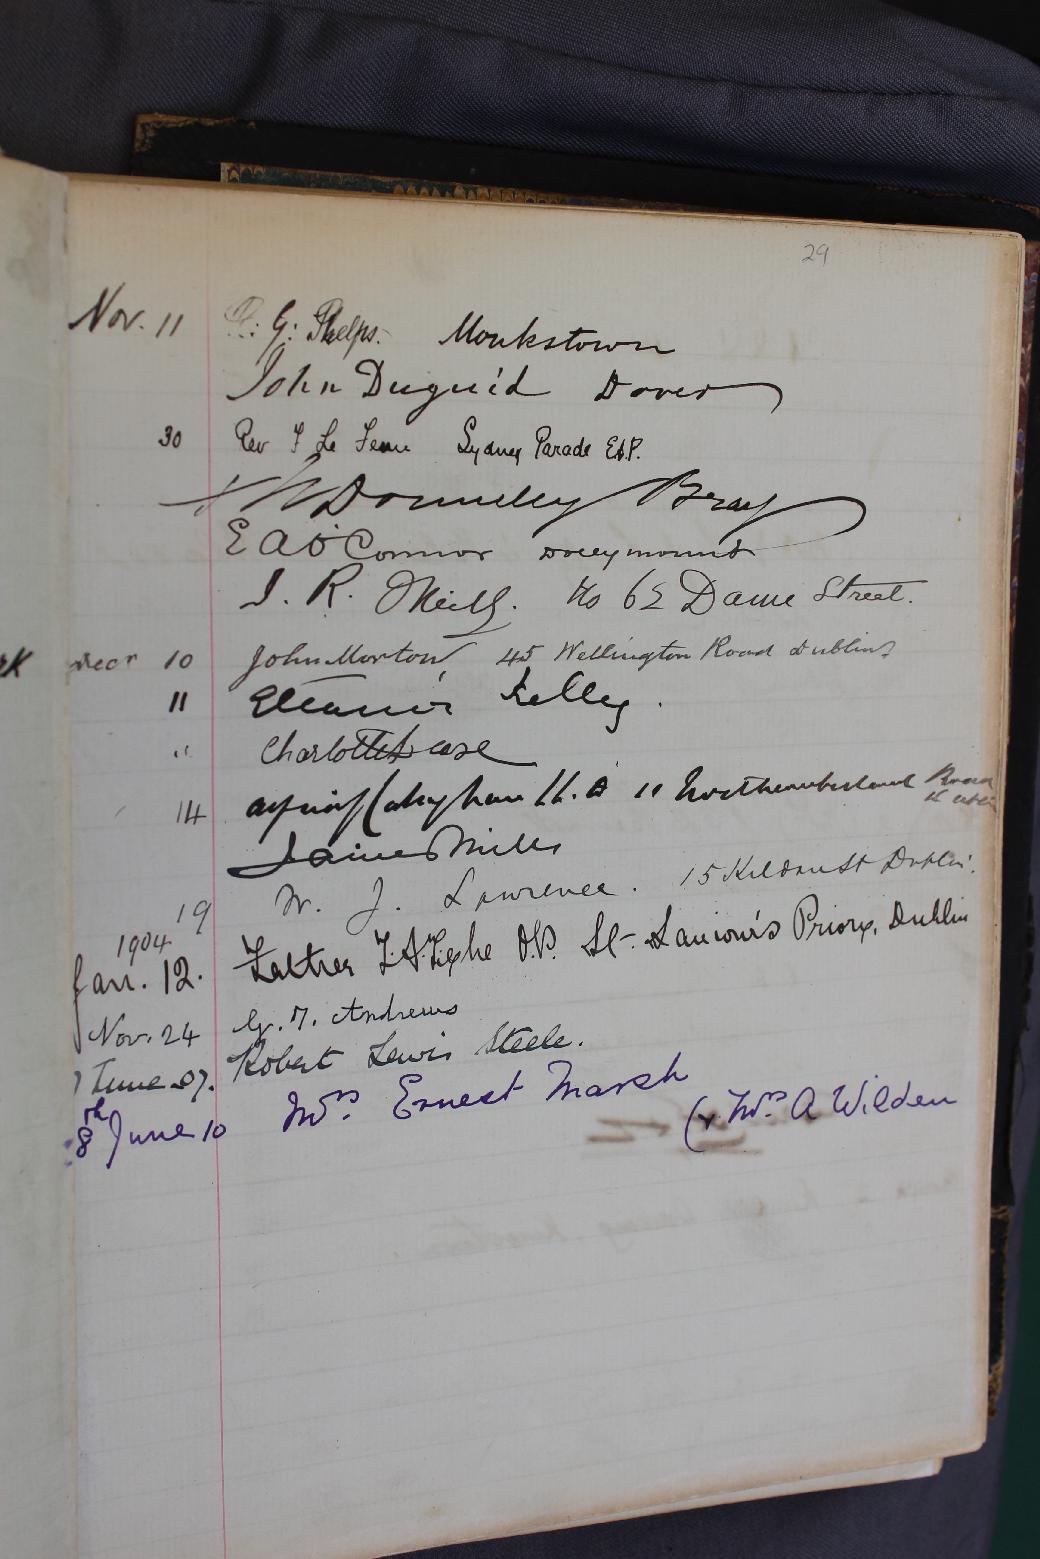 29
Nov. 11 G: Phelps. Monkstown
John Duguid Dover
30 Rev F Le Fenu Sydney Parade Est.
McDonnelley Bray
E A O'Connor Dollymount
J. R. O'Neill. 62 Dame Street.
Decr 10 John Morton 45 Wellington Road Dublin
11 Eleanor Kelley.
" Charlotte Case
14 11 Northumberland Road
James Mills
19 W. J. Lawrence. 15 Kildare St Dublin.
1904
Jan. 12. Father O.P. St. Saviour's Priory, Dublin
Nov. 24 G. T. Andrews
7 June 07. Robert Lewis Steele.
8th June 10 Mrs Ernest Marsh
(& Mrs A Wilden